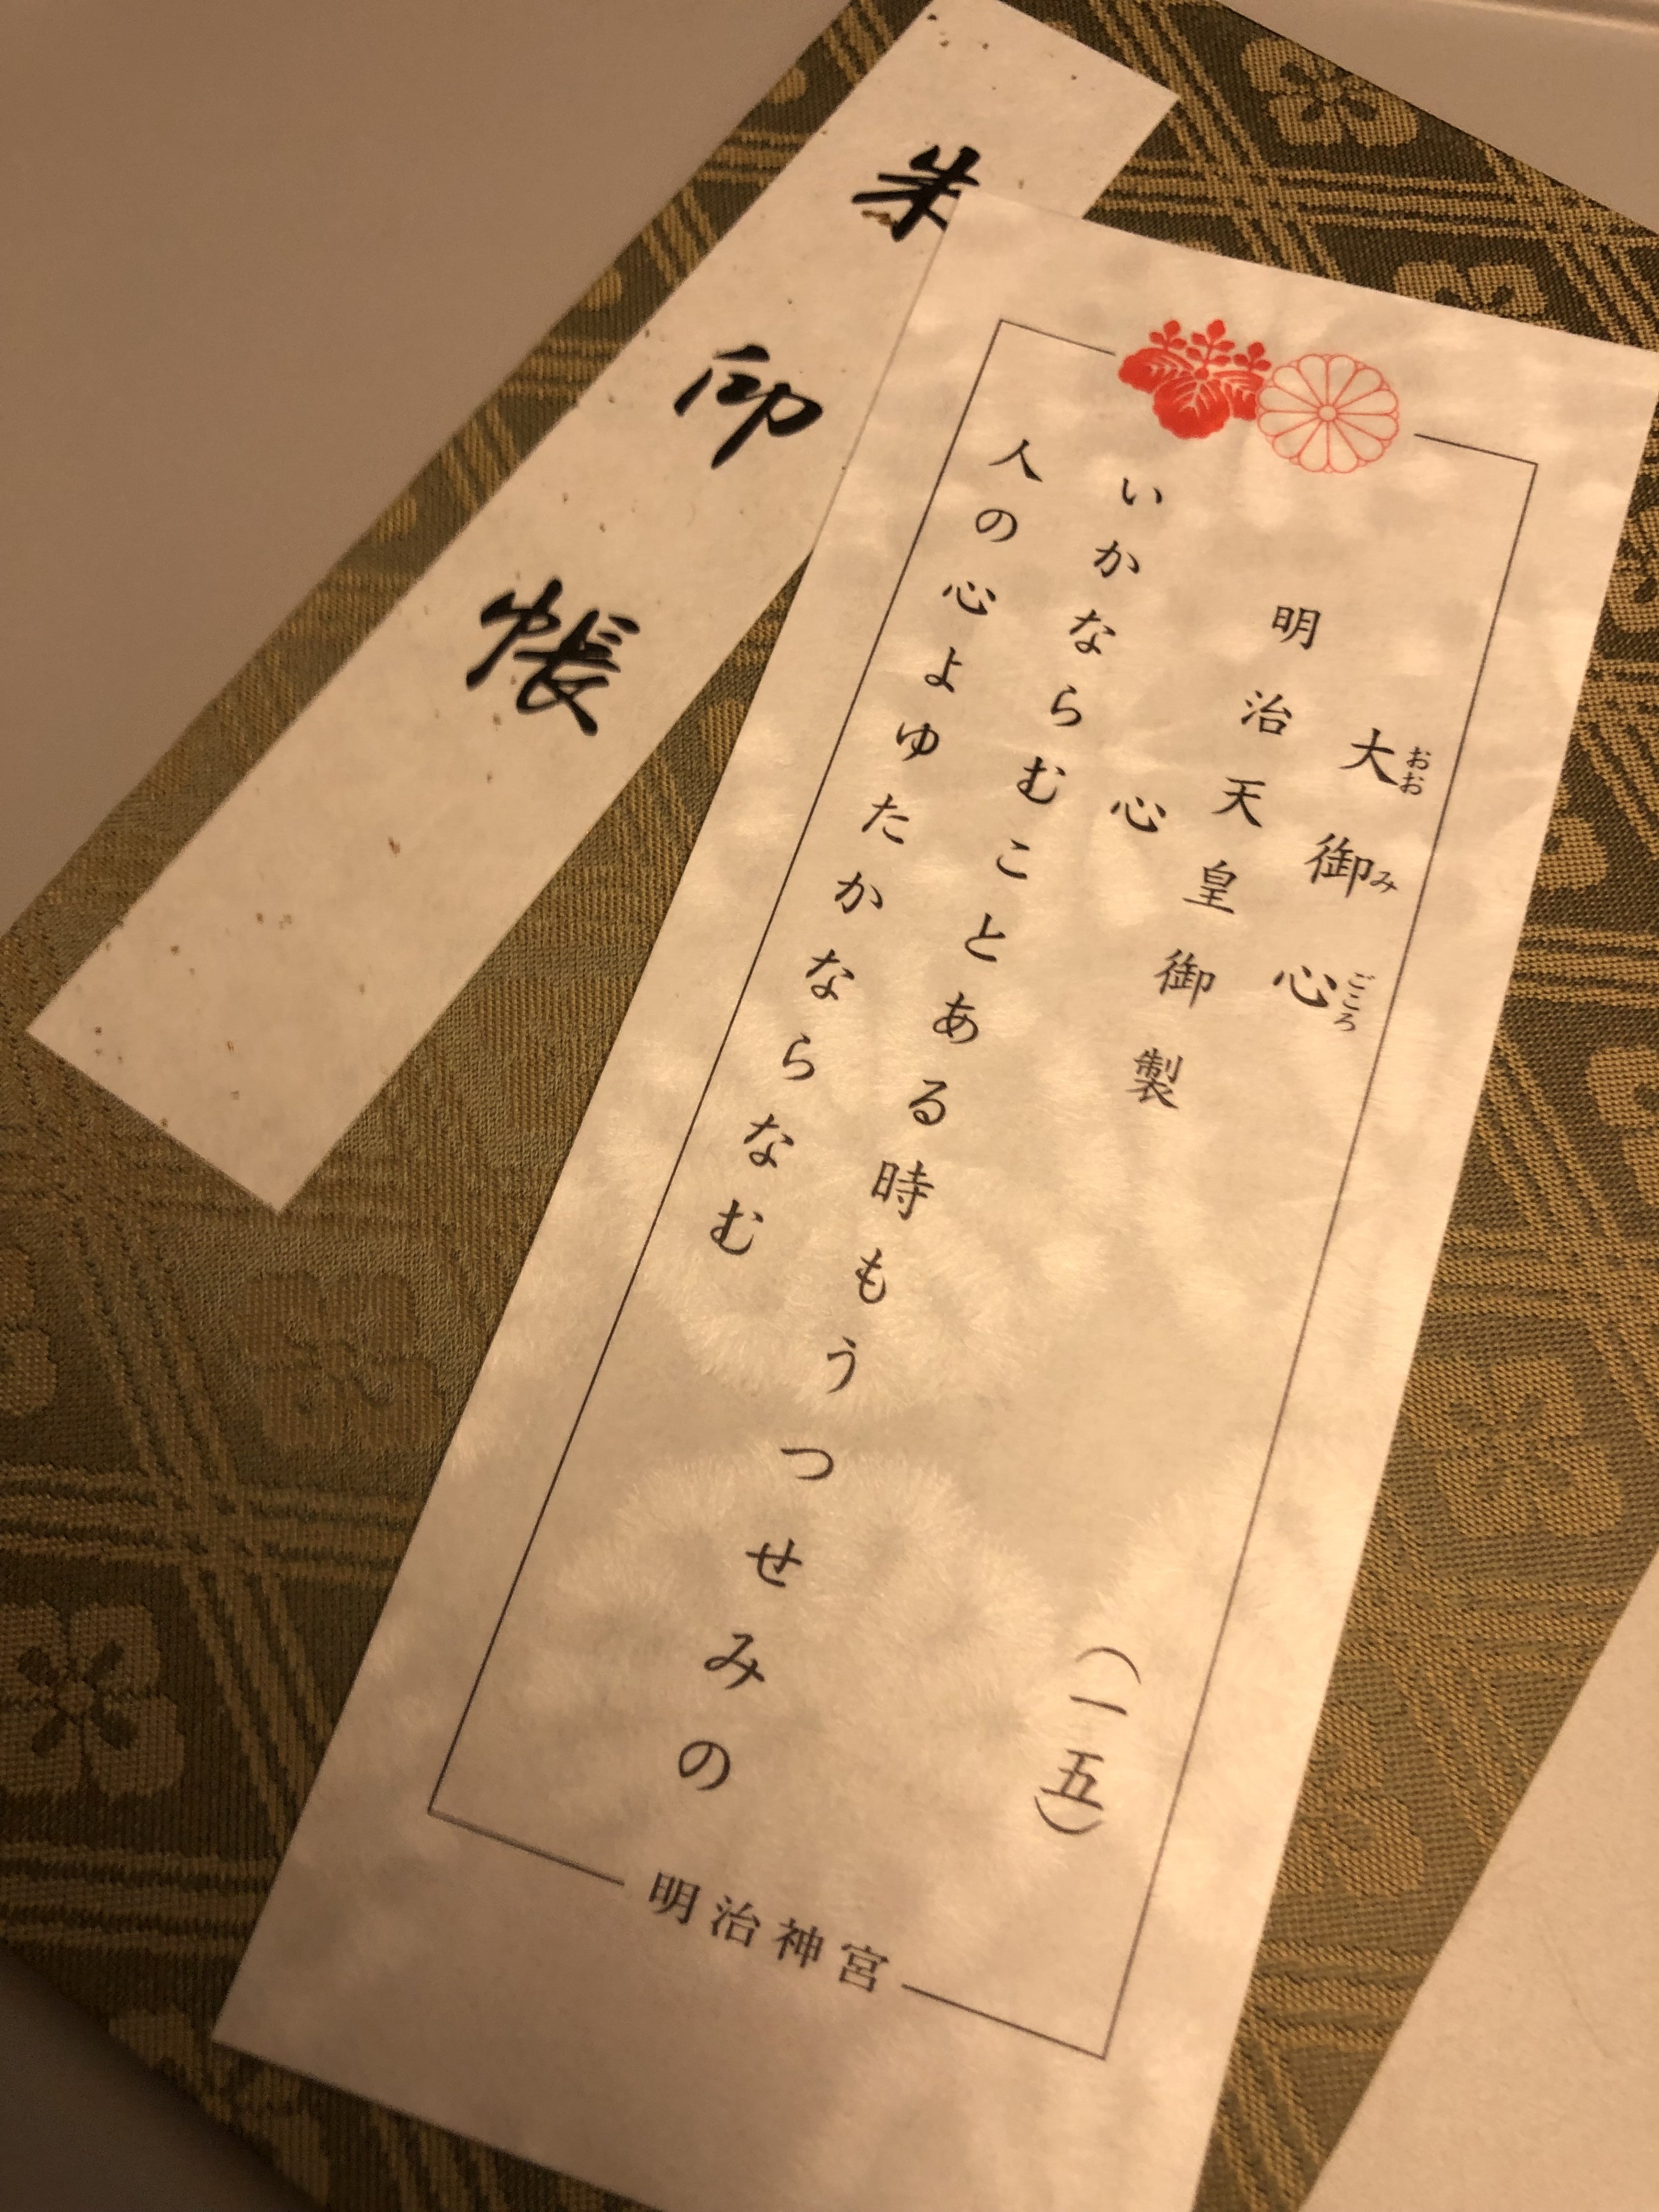 朱印帳
大御心
おおみごころ
明治天皇御製
心
いかならむことある時もうつせみの
人の心よゆたかならなむ
（一五）
明治神宮